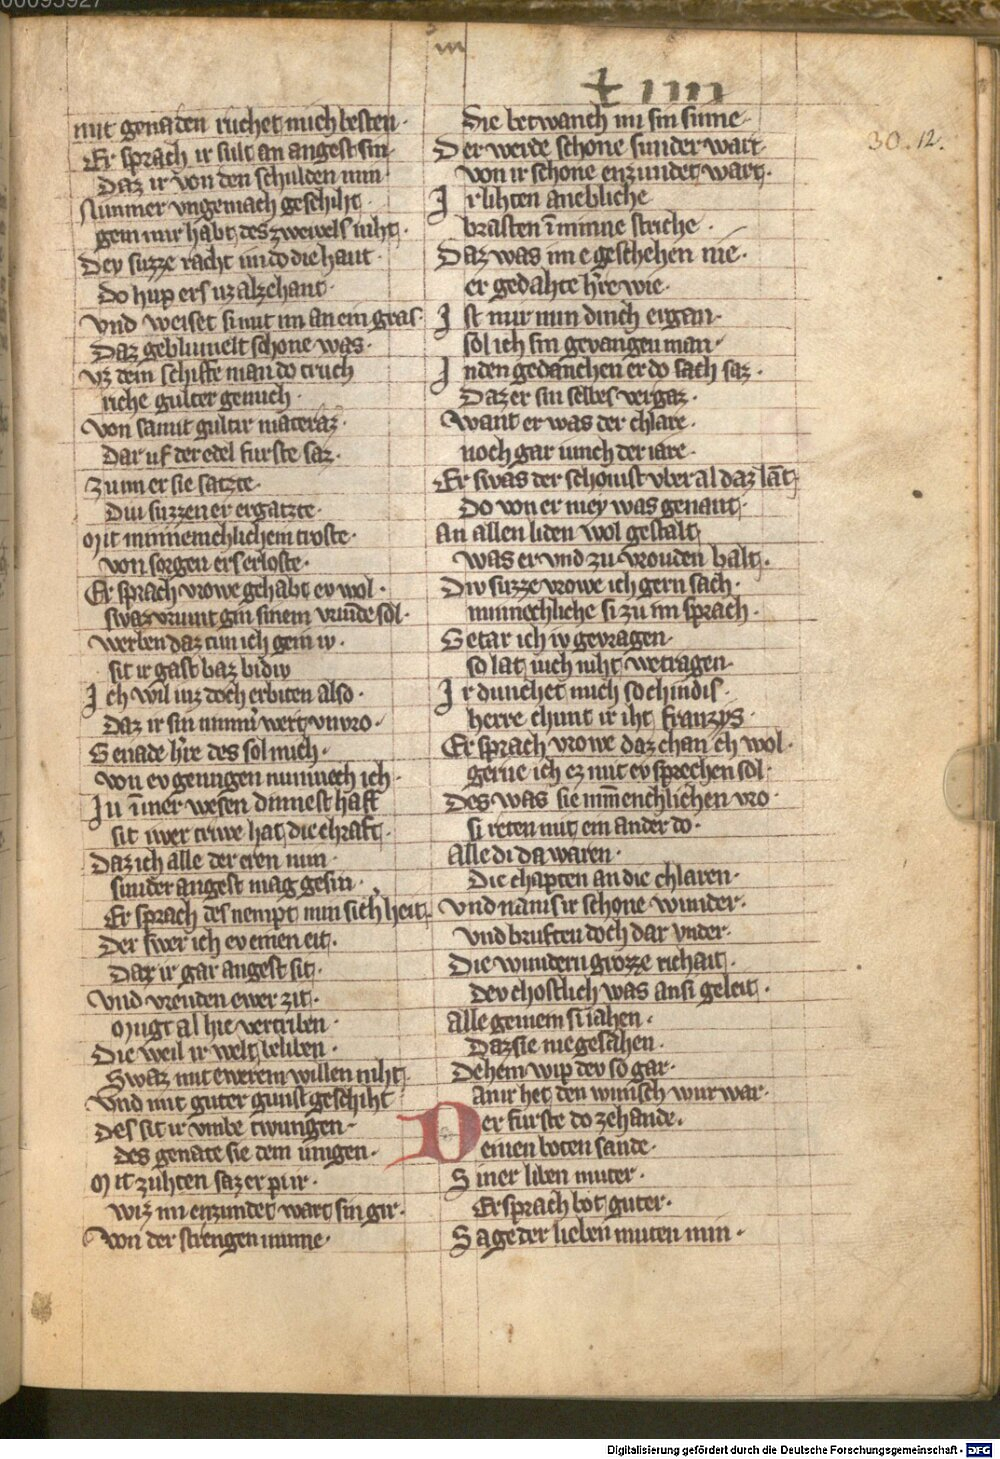 00095927
m
x iiii
30. 12.
mit genaden ruchet mich besten ·
Er sprach ir sult an angest sin ·
Daz ir von den schulden min
Nimmer vngemach geschiht ·
gein mir habt des zweivels niht ·
Dev suzze racht im do die hant ·
Do hup ers uz alzehant ·
Vnd weiset si mit im an ein gras ·
Daz geblumelt schone was ·
Vz dem schiffe man do truch
riche gulter genuch ·
Von samit gulter materaz ·
Dar uf der edel furste saz ·
Zu im er sie satzte ·
Diu suzzen er ergatzte ·
Mit minnenchlichem troste ·
von sorgen er s erloste ·
Er sprach vrowe gehabt ev wol ·
swaz vriunt gein sinem vriunde sol ·
Werben daz tun ich gein iv ·
sit ir gast baz bi div
Ich wil iuz doch erbiten also ·
Daz ir sin nimmer wert vnvro ·
Genade herre des sol mich ·
von ev genugen nu muech ich ·
Iu immer wesen dinnesthaft
sit iwer triwe hat die chraft ·
Daz ich alle der eren min ·
sunder angest mag gesin ·
Er sprach des nempt min sicherheit ·
Der swer ich ev einen eit ·
Daz ir gar angest sit ·
Vnd vreuden ewer zit ·
Mugt al hie vertriben ·
Die weil ir welt beliben ·
Swaz mit ewerem willen niht
Vnd mit guter gunst geschiht
Des sit ir vmbe twungen ·
des genate sie dem iungen ·
Mit zuhten saz er pi ir ·
wiz im enzundet wart sin gir ·
Von der strengen minne ·
Die betwanch im sin sinne ·
Der werde schone sunder wart ·
von ir schone enzundet wart ·
Ir lihten anebliche
brasten in minne striche ·
Daz was im e geschehen nie ·
er gedahte herre wie ·
Ist mir nun dinch ergan ·
sol ich sin gevangen man ·
In den gedanchen er do sach saz ·
Daz er sin selbes vergaz ·
Want er was der chlare ·
noch gar iunch der iare ·
Er swas der schonist vber al daz lant
Do von er mey was genant ·
An allen liden wol gestalt
was er vnd zu vrouden balt ·
Div suzze vrowe ich gern sach ·
minnechliche si zu im sprach ·
Getar ich iv gevragen ·
so lat iuch niht betragen ·
Ir dunchet mich so chindis ·
herre chunt ir iht franzys ·
Er sprach vrowe daz chan ich wol ·
gerne ich ez mit ev sprechen sol ·
Des was sie minnenchlichen vro ·
si reten mit ein ander do ·
Alle di da waren ·
Die chapten an die chlaren ·
Vnd nam s ir schone wunder ·
Vnd bruften doch dar vnder ·
Die wundern grozze richait ·
dev chostlich was an si geleit ·
Alle gemein si iahen ·
Daz sie nie gesahen ·
Dehein wip dev so gar ·
an ir het den wunsch wurwar ·
Der furste do zehande ·
einen boten sande ·
Siner liben muter ·
Er sprach bot guter ·
Sage der lieben muter min ·
Digitalisierung gefördert durch die Deutsche Forschungsgemeinschaft - DFG